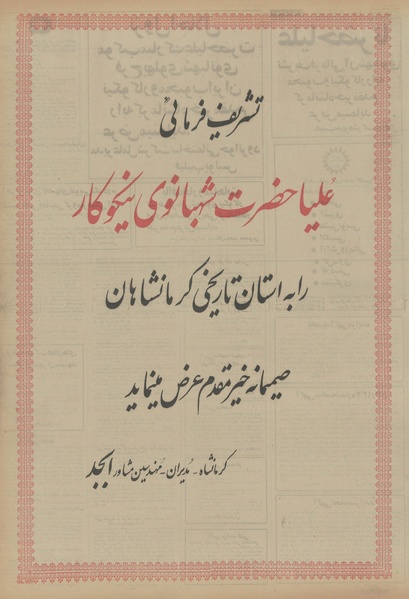 تشریف فرمائی
عُلیاحضرت شهبانوی نیکوکار
را به استان تاریخی کرمانشاهان
صمیمانه خیرمقدم عرض مینماید
کرمانشاه - مُدیران - مُهندسین مشاور ابجد